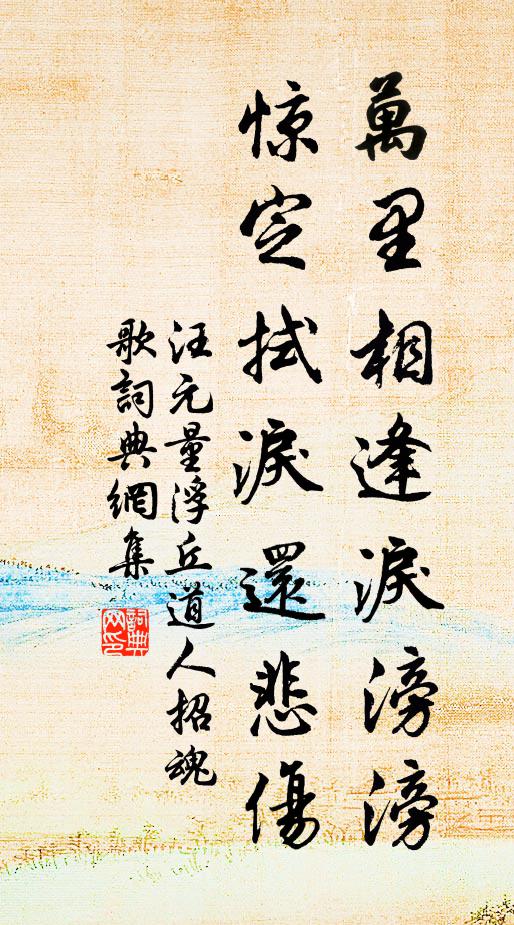 萬里相逢淚滂滂
惊定拭淚還悲傷
汪元量浮丘道人招魂
歌詞典網集
詞典
网印